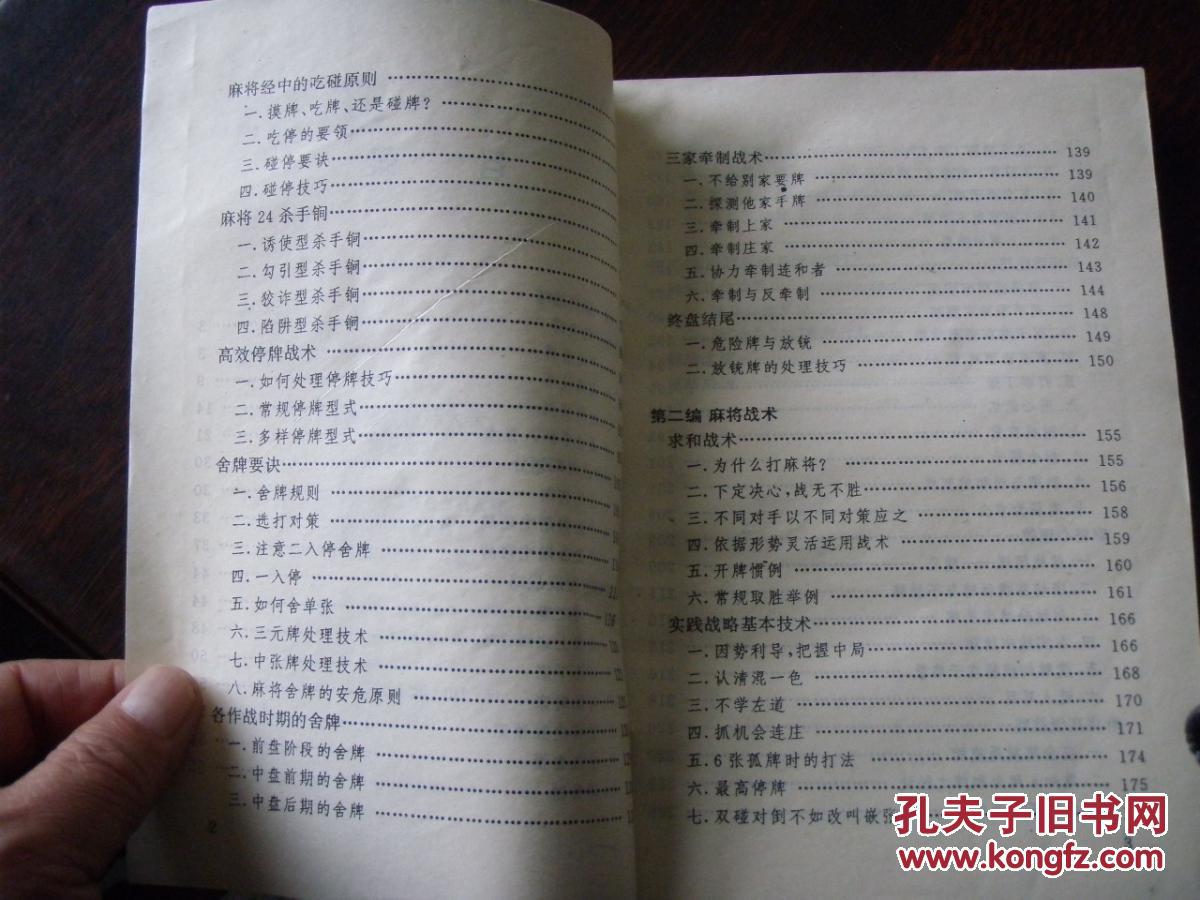 麻将经中的吃碰原则
一.摸牌、吃牌、还是碰牌?
二.吃停的要领
三.碰停要诀
四.碰停技巧
麻将24杀手锏
一.诱使型杀手锏
二.勾引型杀手锏
三.狡诈型杀手锏
四.陷阱型杀手锏
高效停牌战术
一.如何处理停牌技巧
二.常规停牌型式
三.多样停牌型式
舍牌要诀
一.舍牌规则
二.选打对策
三.注意二入停舍牌
四.一入停
五.如何舍单张
六.三元牌处理技术
七.中张牌处理技术
八.麻将舍牌的安危原则
各作战时期的舍牌
一.前盘阶段的舍牌
二.中盘前期的舍牌
三.中盘后期的舍牌
2
三家牵制战术 139
一.不给别家要牌 139
二.探测他家手牌 140
三.牵制上家 141
四.牵制庄家 142
五.协力牵制连和者 143
六.牵制与反牵制 144
终盘结尾 148
一.危险牌与放铳 149
二.放铳牌的处理技巧 150
第二编 麻将战术
求和战术 155
一.为什么打麻将? 155
二.下定决心,战无不胜 156
三.不同对手以不同对策应之 158
四.依据形势灵活运用战术 159
五.开牌惯例 160
六.常规取胜举例 161
实践战略基本技术 166
一.因势利导,把握中局 166
二.认清混一色 168
三.不学左道 170
四.抓机会连庄 171
五.6张孤牌时的打法 174
六.最高停牌 175
七.双碰对倒不如改叫嵌张
3
孔夫子旧书网
www.kongfz.com